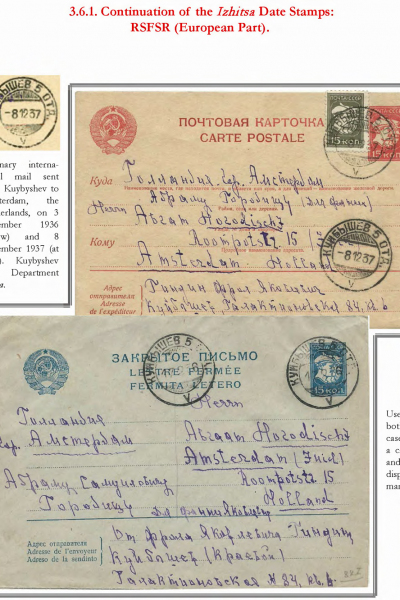 3.6.1. Continuation of the Izhitsa Date Stamps:
RSFSR (European Part).
КУЙБЫШЕВ 5 ОТД.
-8 12 37
V
nary interna-
l mail sent
Kuybyshev to
terdam, the
herlands, on 3
ember 1936
w) and 8
ember 1937 (at
). Kuybyshev
Department
s.
ПОЧТОВАЯ КАРТОЧКА
CARTE POSTALE
15 КОП.
15 КОП.
Куда Голландия гор. Амстердам
Абраму Городищу
Herrn Абгам Horodisch
Кому Roompotstr 15
Amsterdam Holland
КУЙБЫШЕВ 5 ОТД.
-8 12 37
V
Адрес
отправителя
Adresse de
l'expéditeur
Гиндин Фрол Яковлевич
Куйбышев, Галактионовская 84, кв. 6
ЗАКРЫТОЕ ПИСЬМО
LETTRE FERMÉE
FERMITA LETERO
КУЙБЫШЕВ 5
V
15 КОП.
V
Голландия
гор. Амстердам
Абраму Самуиловичу
Городищу
Herrn
Abraam Horodisch
Amsterdam (Zuid)
Roompotstr 15
Holland
Адрес отправителя
Adresse de l'envoyeur
Adreso de la sendinto
От Фрола Яковлевича Гиндина
Куйбышев (Краевой)
Галактионовская № 84, кв. 6.
Use
bot
case
a c
and
disp
mar